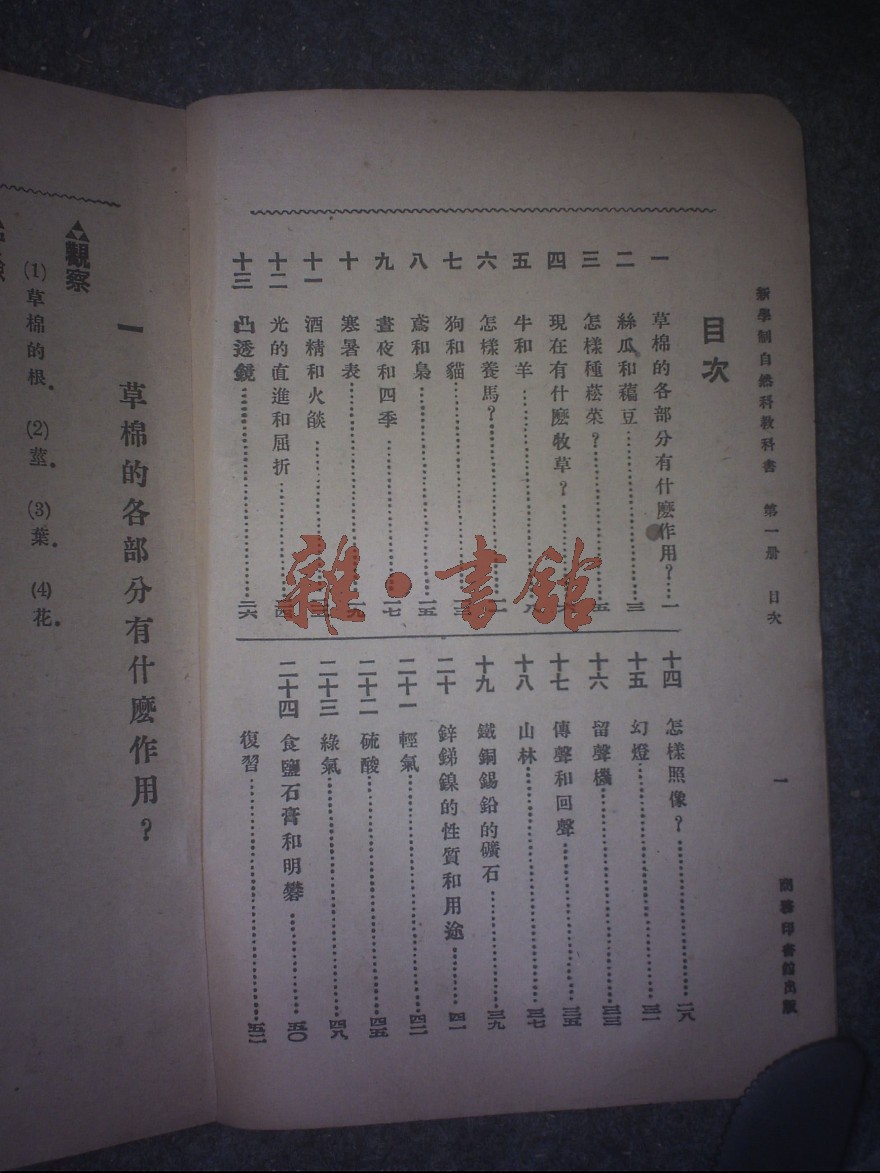 新學制自然科教科書 第一册 目次
一
商務印書館出版
目次
一 草棉的各部分有什麽作用?……一
二 絲瓜和藊豆……三
三 怎樣種菘菜?……五
四 現在有什麽牧草?……
五 牛和羊……八
六 怎樣養馬?……
七 狗和貓……
八 鳶和梟……一五
九 晝夜和四季……一七
十 寒暑表……一九
十一 酒精和火燄……
十二 光的直進和屈折……二四
十三 凸透鏡……二六
十四 怎樣照像?……二八
十五 幻燈……三一
十六 留聲機……三三
十七 傳聲和回聲……三五
十八 山林……三七
十九 鐵銅錫鉛的礦石……三九
二十 鋅銻鎳的性質和用途……四一
二十一 輕氣……四二
二十二 硫酸……四五
二十三 綠氣……四八
二十四 食鹽石膏和明礬……五〇
復習……五二
雜·書館
一 草棉的各部分有什麽作用?
觀察
(1)草棉的根. (2)莖. (3)葉. (4)花.